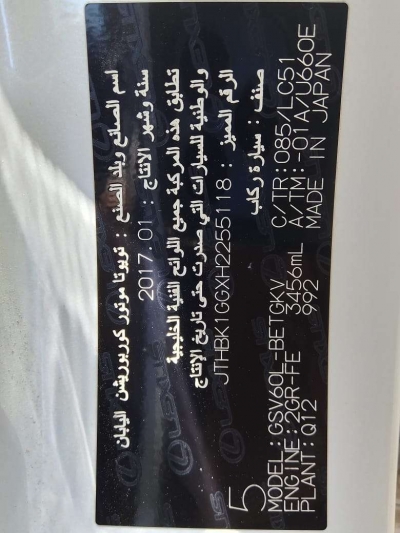 اسم الصانع وبلد الصنع : تويوتا موتور كوربوريشن اليابان
سنة وشهر الانتاج : 2017.01
تطابق هذه المركبة جميع اللوائح الفنية الخليجية
والوطنية للسيارات التي صدرت حتى تاريخ الإنتاج
الرقم المميز : JTHBK1GGXH2255118
صنف : سيارة ركاب
5
MODEL:GSV60L-BETGKV C/TR:085/LC51
ENGINE:2GR-FE 3456mL A/TM:-01A/U660E
PLANT:Q12 992 MADE IN JAPAN